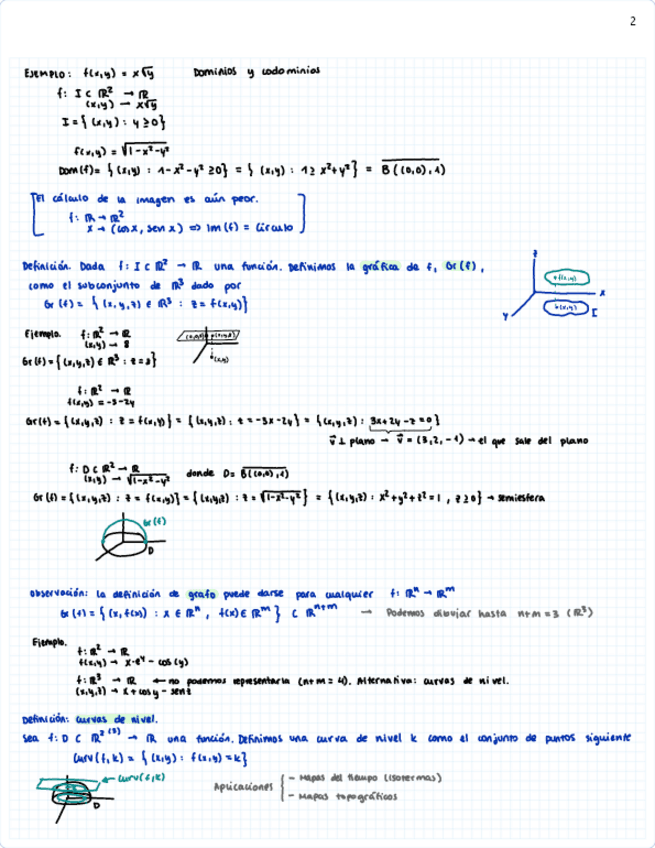 2
EJEMPLO: f(x,y) = x√y Dominios y codominios
f: I ⊂ ℝ² → ℝ
(x,y) → x√y
I = { (x,y) : y ≥ 0}
f(x,y) = √1-x²-y²
Dom(f) = { (x,y) : 1-x²-y² ≥ 0} = { (x,y) : 1 ≥ x²+y²} = B((0,0),1)
El cálculo de la imagen es aún peor.
f: ℝ → ℝ²
x → (cos x, sen x) ⇒ Im(f) = círculo
Definición. Dada f: I ⊂ ℝ² → ℝ una función. Definimos la gráfica de f, Gr(f),
como el subconjunto de ℝ³ dado por
Gr(f) = { (x,y,z) ∈ ℝ³ : z = f(x,y)}
z
x
y
I
Ejemplo. f: ℝ² → ℝ
(x,y) → 8
Gr(f) = { (x,y,z) ∈ ℝ³ : z = 8}
(x,y)
f: ℝ² → ℝ
f(x,y) = -3-2y
Gr(f) = { (x,y,z) : z = f(x,y)} = { (x,y,z) : z = -3x-2y} = { (x,y,z) : 3x+2y-z=0}
v⃗ ⊥ plano → v⃗ = (3,2,-1) → el que sale del plano
f: D ⊂ ℝ² → ℝ donde D = B((0,0),1)
(x,y) → √1-x²-y²
Gr(f) = { (x,y,z) : z = f(x,y)} = { (x,y,z) : z = √1-x²-y²} = { (x,y,z) : x²+y²+z²=1, z≥0} → semiesfera
Gr(f)
D
Observación: la definición de grafo puede darse para cualquier f: ℝⁿ → ℝᵐ
Gr(f) = { (x, f(x)) : x ∈ ℝⁿ, f(x) ∈ ℝᵐ } ⊂ ℝⁿ⁺ᵐ → Podemos dibujar hasta n+m=3 (ℝ³)
Ejemplo.
f: ℝ² → ℝ
f(x,y) → x·eʸ - cos(y)
f: ℝ³ → ℝ ← no podemos representarla (n+m=4). Alternativa: curvas de nivel.
(x,y,z) → x+cos y - sen z
Definición: curvas de nivel.
Sea f: D ⊂ ℝ² ⁽³⁾ → ℝ una función. Definimos una curva de nivel k como el conjunto de puntos siguiente
Curv(f,k) = { (x,y) : f(x,y) = k}
← Curv(f,k)
D
Aplicaciones { - Mapas del tiempo (isotermas)
- Mapas topográficos